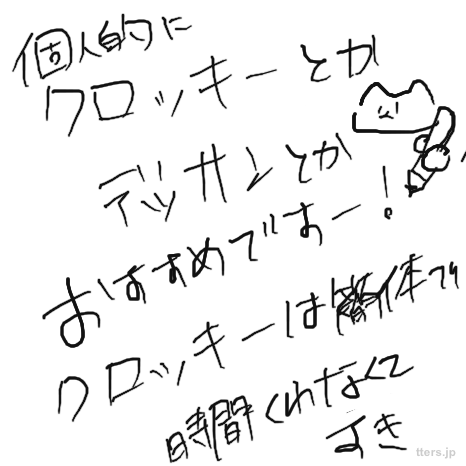 個人的に
クロッキーとか
デッサンとか
おすすめですー!
クロッキーは簡体で
時間くわなくて
よき
tters.jp